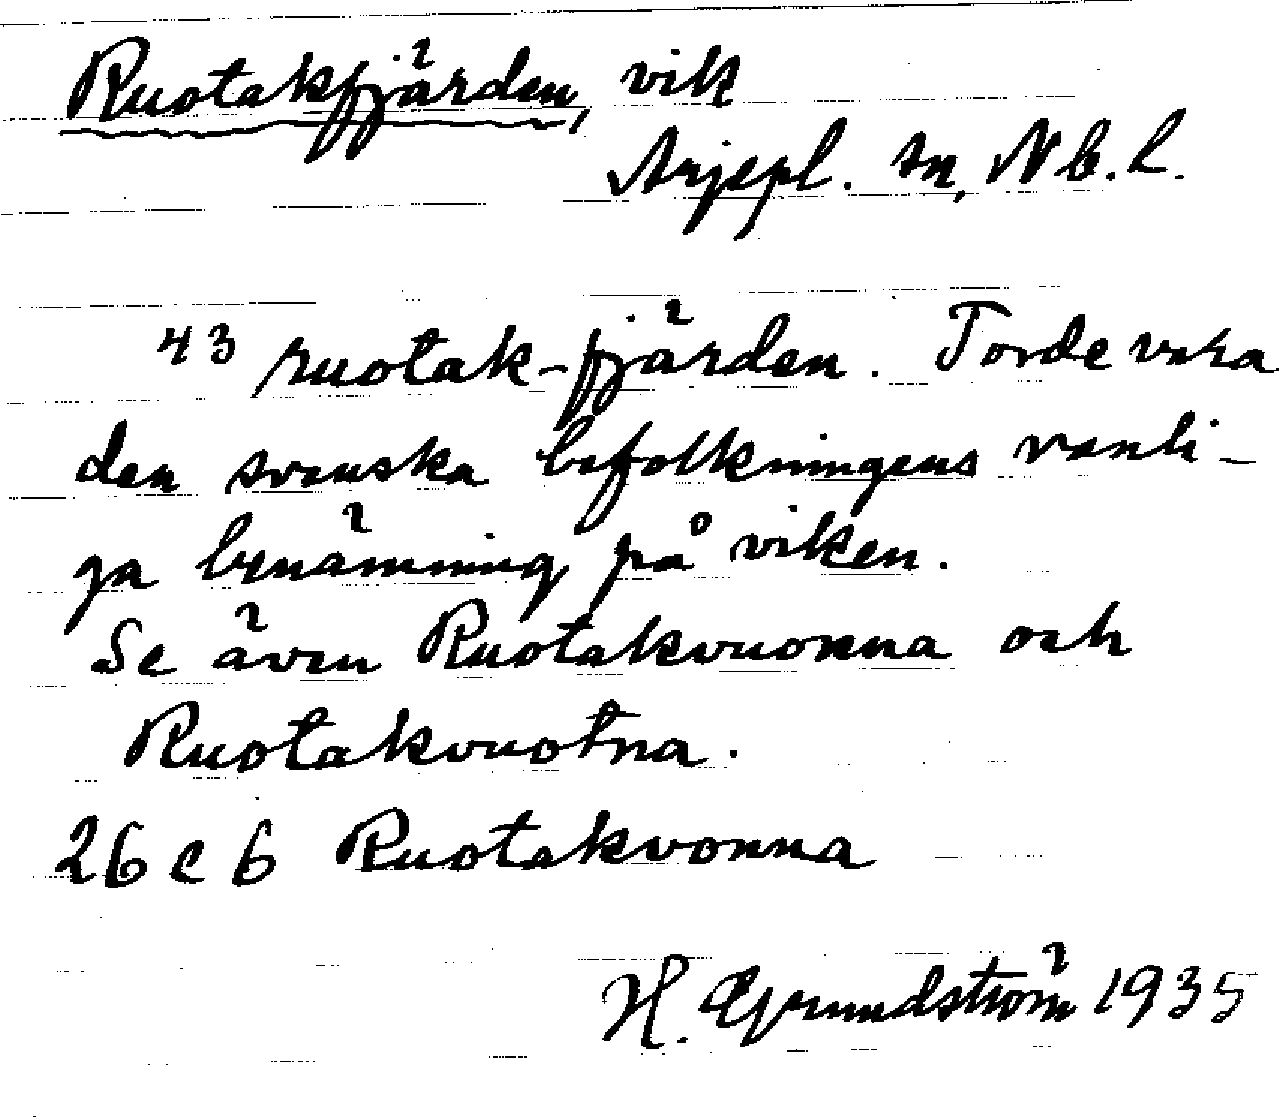 Ruotakfjärden, vik
Arjepl. sn, Nb. L.
43 ruotak-fjärden. Torde vara
den svenska befolkningens vanli-
ga benämning på viken.
Se även Ruotakvuonna och
Ruotakvuotna.
26 c 6 Ruotakvonna
H. Grundström 1935